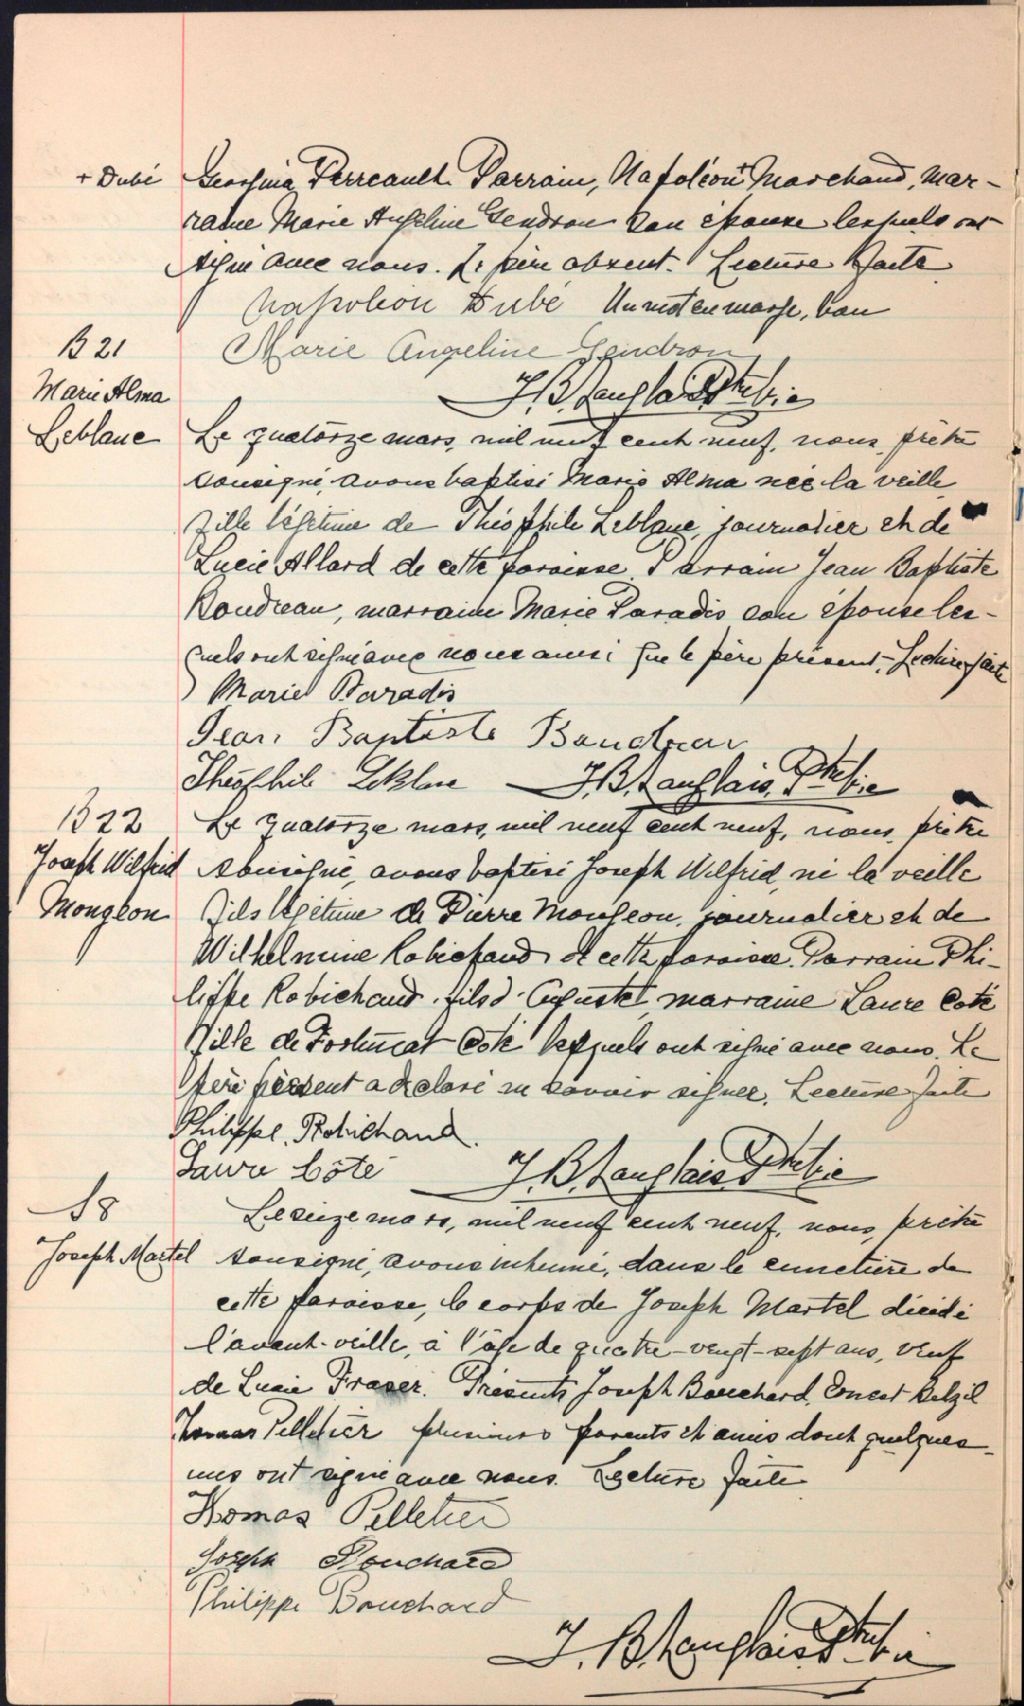 + Dubé
Georgina Perreault. Parrain, Napoléon + Marchand, mar-
raine Marie Angeline Gendron son épouse lesquels ont
signé avec nous. Le père absent. Lecture faite
Napoleon Dubé Un mot en marge, bon
Marie Angeline Gendron
J.B. Langlais Ptre Vic
B 21
Marie Alma
Leblanc
Le quatorze mars, mil neuf cent neuf, nous, prêtre
soussigné, avons baptisé Marie Alma née la veille
fille légitime de Théophile Leblanc, journalier et de
Lucie Allard de cette paroisse. Parrain Jean Baptiste
Boudreau, marraine Marie Paradis son épouse les-
quels ont signé avec nous ainsi que le père présent. Lecture faite
Marie Paradis
Jean Baptiste Boudreau
Théophile Leblanc J.B. Langlais, Ptre Vic
B 22
Joseph Wilfrid
Mongeon
Le quatorze mars, mil neuf cent neuf, nous, prêtre
soussigné, avons baptisé Joseph Wilfrid, né la veille
fils légitime de Pierre Mongeon, journalier et de
Wilhelmine Robichaud de cette paroisse. Parrain Phi-
lippe Robichaud, fils d'Auguste, marraine Laure Coté
fille de Fortunat Coté lesquels ont signé avec nous. Le
père présent a déclaré ne savoir signer. Lecture faite
Philippe Robichaud.
Laure Côté J.B. Langlais Ptre Vic
S8
Joseph Martel
Le seize mars, mil neuf cent neuf, nous, prêtre
soussigné, avons inhumé, dans le cimetière de
cette paroisse, le corps de Joseph Martel décédé
l'avant-veille, à l'âge de quatre-vingt-sept ans, veuf
de Lucie Fraser. Présents Joseph Bouchard, Ernest Belzil
Thomas Pelletier plusieurs parents et amis dont quelques-
uns ont signé avec nous. Lecture faite
Thomas Pelletier
Joseph Bouchard
Philippe Bouchard
J.B. Langlais Ptre Vic